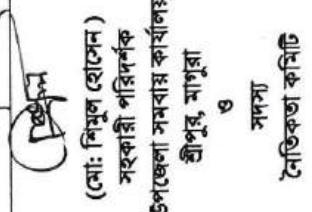 (মো: শিমুল হোসেন)
সহকারী পরিদর্শক
উপজেলা সমবায় কার্যালয়
শ্রীপুর, মাগুরা
ও
সদস্য
নৈতিকতা কমিটি